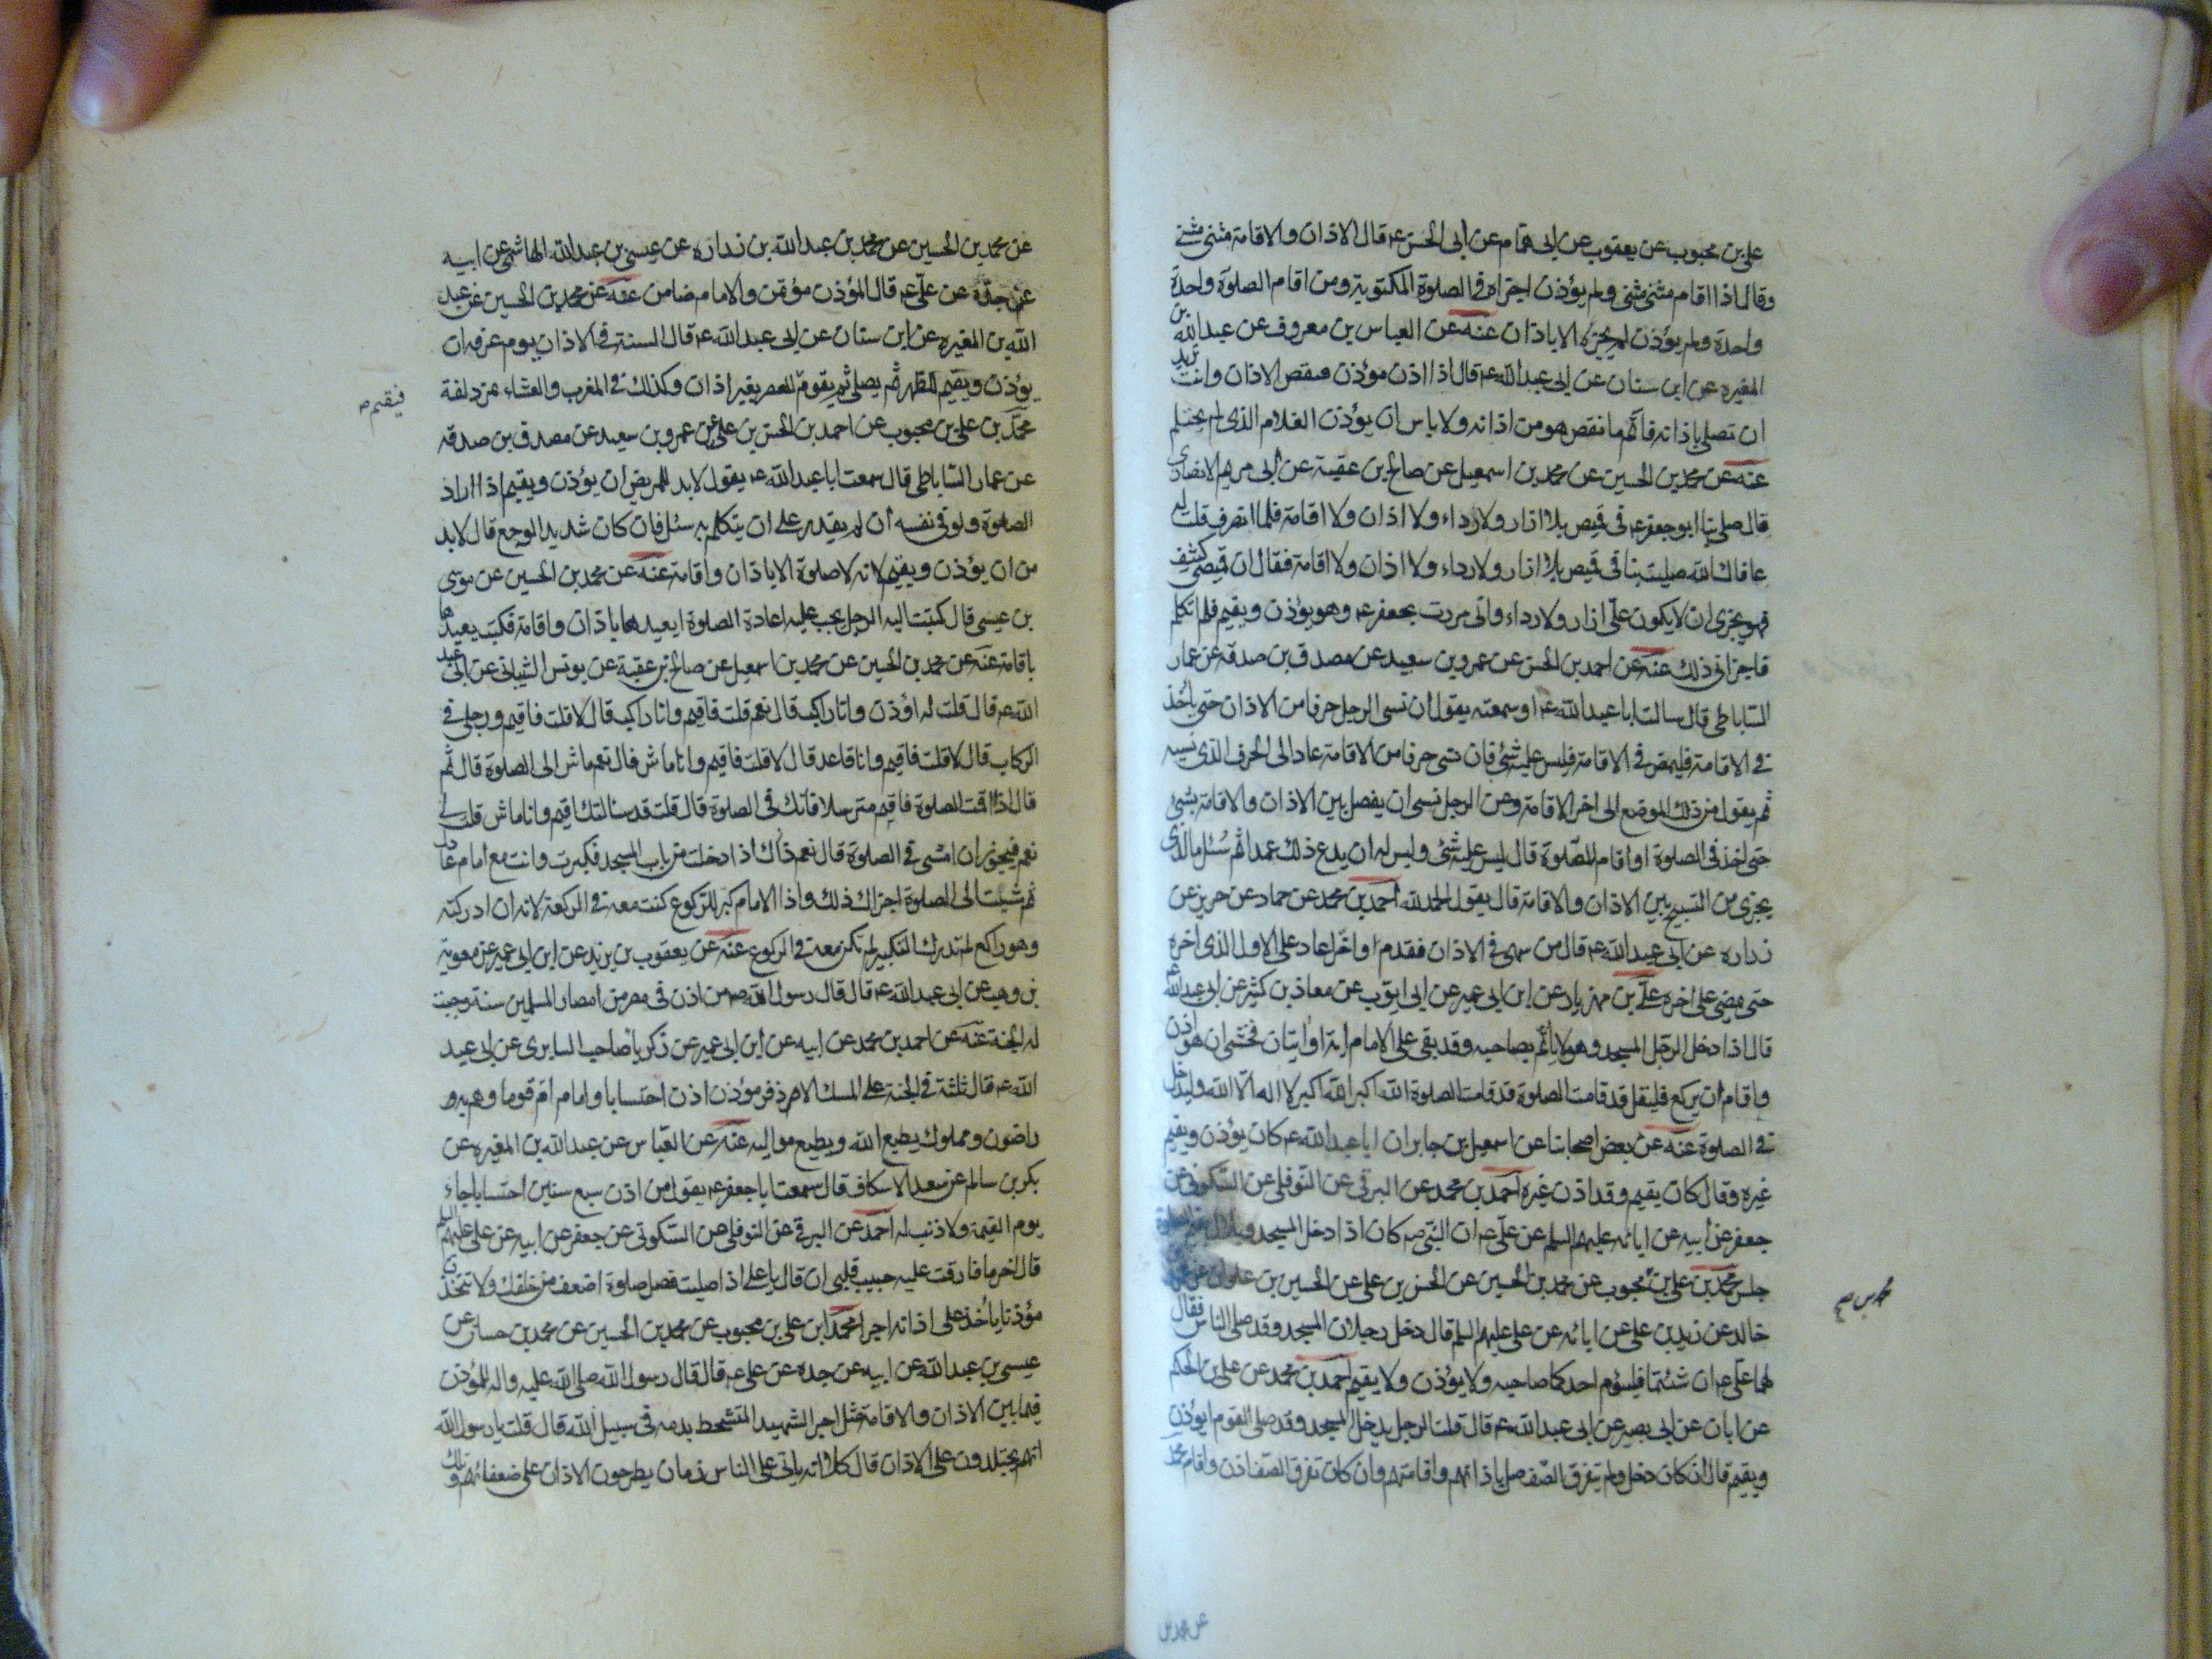 علي بن محبوب عن يعقوب عن ابى همام عن ابى الحسن ع قال الاذان والاقامة مثنى مثنى
وقال اذا اقام مثنى مثنى ولم يؤذن اجزاه فى الصلوة المكتوبة ومن اقام الصلوة واحدة
واحدة ولم يؤذن لم يجزه الا باذان عنه عن العباس بن معروف عن عبد الله بن
المغيره عن ابن سنان عن ابى عبد الله ع قال اذا اذن مؤذن فنقص الاذان وانت تريد
ان تصلى باذانه فاتم ما نقص هو من اذانه ولا باس ان يؤذن الغلام الذى لم يحتلم
عنه عن محمد بن الحسين عن محمد بن اسمعيل عن صالح بن عقبة عن ابى مريم الانصارى
قال صلى بنا ابو جعفر ع فى قميص بلا ازار ولا رداء ولا اذان ولا اقامة فلما انصرف قلت له
عافاك الله صليت بنا فى قميص بلا ازار ولا رداء ولا اذان ولا اقامة فقال ان قميصى كثيف
فهو يجزى ان لا يكون على ازار ولا رداء وانى مررت بجعفر ع وهو يؤذن ويقيم فلم اتكلم
فاجزانى ذلك عنه عن احمد بن الحسن عن عمرو بن سعيد عن مصدق بن صدقه عن عمار
الساباطى قال سالت ابا عبد الله ع او سمعته يقول ان نسى الرجل حرفا من الاذان حتى ياخذ
فى الاقامة فليمض فى الاقامة فليس عليه شئ فان نسى حرفا من الاقامة عاد الى الحرف الذى نسيه
ثم يقول من ذلك الموضع الى اخر الاقامة وعن الرجل نسى ان يفصل بين الاذان والاقامة بشئ
حتى اخذ فى الصلوة او اقام للصلوة قال ليس عليه شئ وليس له ان يدع ذلك عمدا ثم سئل ما الذى
يجزى من التسبيح بين الاذان والاقامة قال يقول الحمد لله احمد بن محمد عن حماد عن حريز عن
زراره عن ابى عبد الله ع قال من سهى فى الاذان فقدم او اخر اعاد على الاول الذى اخره
حتى يمضى على اخره على بن مهزيار عن ابن ابى عمير عن ابى ايوب عن معاذ بن كثير عن ابى عبد الله ع
قال اذا دخل الرجل المسجد وهو لا ياتم بصاحبه وقد بقى على الامام اية او ايتان فخشى ان هو اذن
واقام ان يركع فليقل قد قامت الصلوة قد قامت الصلوة الله اكبر الله اكبر لا اله الا الله وليدخل
فى الصلوة عنه عن بعض اصحابنا عن اسمعيل بن جابر ان ابا عبد الله ع كان يؤذن ويقيم
غيره وقال كان يقيم وقد اذن غيره احمد بن محمد عن البرقى عن النوفلى عن السكونى عن
جعفر عن ابيه عن ابائه عليهم السلم عن على ع ان النبى ص كان اذا دخل المسجد وبلال يقيم الصلوة
جلس محمد بن على بن محبوب عن محمد بن الحسين عن الحسن بن على عن الحسين بن علوان عن عمرو بن
خالد عن زيد بن على عن ابائه عن على عليهم السلم قال دخل رجلان المسجد وقد صلى الناس فقال
لهما على ع ان شئتما فليؤم احدكما صاحبه ولا يؤذن ولا يقيم احمد بن محمد عن على بن الحكم
عن ابان عن ابى بصير عن ابى عبد الله ع قال قلت الرجل يدخل المسجد وقد صلى القوم ايؤذن
ويقيم قال ان كان دخل ولم يتفرق الصف صلى باذانهم واقامتهم وان كان تفرق الصف اذن واقام محمد
عن محمد بن
عن محمد بن الحسين عن محمد بن عبد الله بن زراره عن عيسى بن عبد الله الهاشمى عن ابيه
عن جده عن على ع قال المؤذن مؤتمن والامام ضامن عنه عن محمد بن الحسين عن عبد
الله بن المغيره عن ابن سنان عن ابى عبد الله ع قال السنة فى الاذان يوم عرفه ان
يؤذن ويقيم للظهر ثم يصلى ثم يقوم للعصر بغير اذان وكذلك فى المغرب والعشاء بمزدلفة
فيقيم
محمد بن على بن محبوب عن احمد بن الحسن بن على عن عمرو بن سعيد عن مصدق بن صدقه
عن عمار الساباطى قال سمعت ابا عبد الله ع يقول لا بد للمريض ان يؤذن ويقيم اذا اراد
الصلوة ولو فى نفسه ان لم يقدر على ان يتكلم به سئل فان كان شديد الوجع قال لا بد
من ان يؤذن ويقيم لانه لا صلوة الا باذان واقامة عنه عن محمد بن الحسين عن موسى
بن عيسى قال كتبت اليه الرجل يجب عليه اعادة الصلوة ايعيدها باذان واقامة فكتب يعيدها
باقامة عنه عن محمد بن الحسين عن محمد بن اسمعيل عن صالح بن عقبة عن يونس الشيبانى عن ابى عبد
الله ع قال قلت له اؤذن وانا راكب قال نعم قلت فاقيم وانا راكب قال لا قلت فاقيم ورجلى فى
الركاب قال لا قلت فاقيم وانا قاعد قال لا قلت فاقيم وانا ماش قال نعم ماش الى الصلوة قال ثم
قال اذا اقمت الصلوة فاقيم مترسلا فانك فى الصلوة قال قلت قد سالتك اقيم وانا ماش قلت لى
نعم فيجوز ان امشى فى الصلوة قال نعم ذاك اذا دخلت من باب المسجد فكبرت وانت مع امام عادل
ثم مشيت الى الصلوة اجزاك ذلك واذا الامام كبر للركوع كنت معه فى الركعة لانه ان ادركته
وهو راكع لم تدرك التكبير لم تكن معه فى الركوع عنه عن يعقوب بن يزيد عن ابن ابى عمير عن معوية
بن وهب عن ابى عبد الله ع قال قال رسول الله ص من اذن فى مصر من امصار المسلمين سنة وجبت
له الجنة عنه عن احمد بن محمد عن ابيه عن ابن ابى عمير عن زكريا صاحب السابرى عن ابى عبد
الله ع قال ثلثة فى الجنة على المسك الاذفر مؤذن اذن احتسابا وامام ام قوما وهم به
راضون ومملوك يطيع الله ويطيع مواليه عنه عن العباس عن عبد الله بن المغيره عن
بكر بن سالم عن سعد الاسكاف قال سمعت ابا جعفر ع يقول من اذن سبع سنين احتسابا جاء
يوم القيمة ولا ذنب له احمد عن البرقى عن النوفلى عن السكونى عن جعفر عن ابيه عن على عليهم السلم
قال اخر ما فارقت عليه حبيب قلبى ان قال يا على اذا صليت فصل صلوة اضعف من خلفك ولا تتخذن
مؤذنا ياخذ على اذانه اجرا محمد بن على بن محبوب عن محمد بن الحسين عن محمد بن حسان عن
عيسى بن عبد الله عن ابيه عن جده عن على ع قال قال رسول الله صلى الله عليه واله للمؤذن
فيما بين الاذان والاقامة مثل اجر الشهيد المتشحط بدمه فى سبيل الله قال قلت يا رسول الله
انهم يجتلدون على الاذان قال كلا انه ياتى على الناس زمان يطرحون الاذان على ضعفائهم وتلك